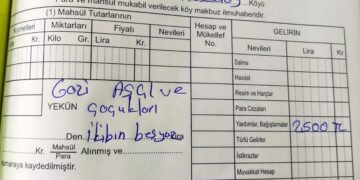 Köyü
Para ve mahsul mukabil verilecek köy makbuz ilmuhaberidir.
(1) Mahsül Tutarlarının
Kıymetleri Miktarları Fiyatı Nevileri
Kr. Kilo Gr. Lira Kr.
Hesap ve Mükellef No.
GELİRİN
Nevileri Lira Kr.
Salma
Hasılat
Resim ve Harçlar
Para Cezaları
Yardımlar, Bağışlamalar 2500 TL
Türlü Gelirler
İstikrazlar
Muvakkat Hesap
Gazi AŞGI ve
YEKÜN çocukları
Den. ikibin beşyüz
Kr. Mahsül Para Alınmış ve
numaraya kaydedilmiştir.